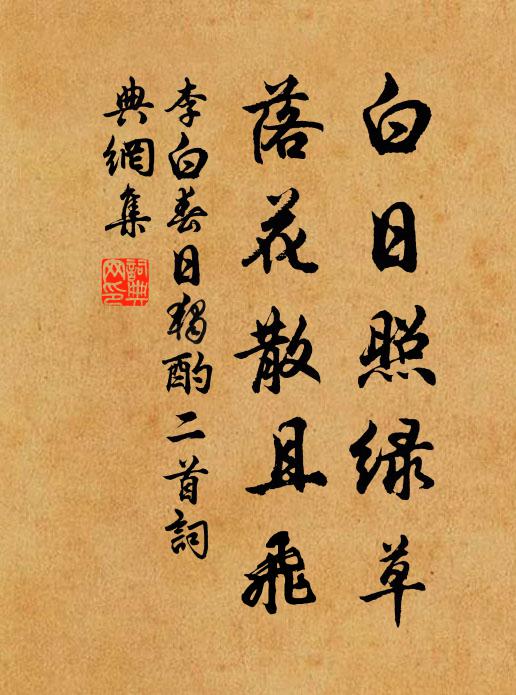 白日照绿草
落花散且飛
李白春日獨酌二首詞
典網集
詞典
网印